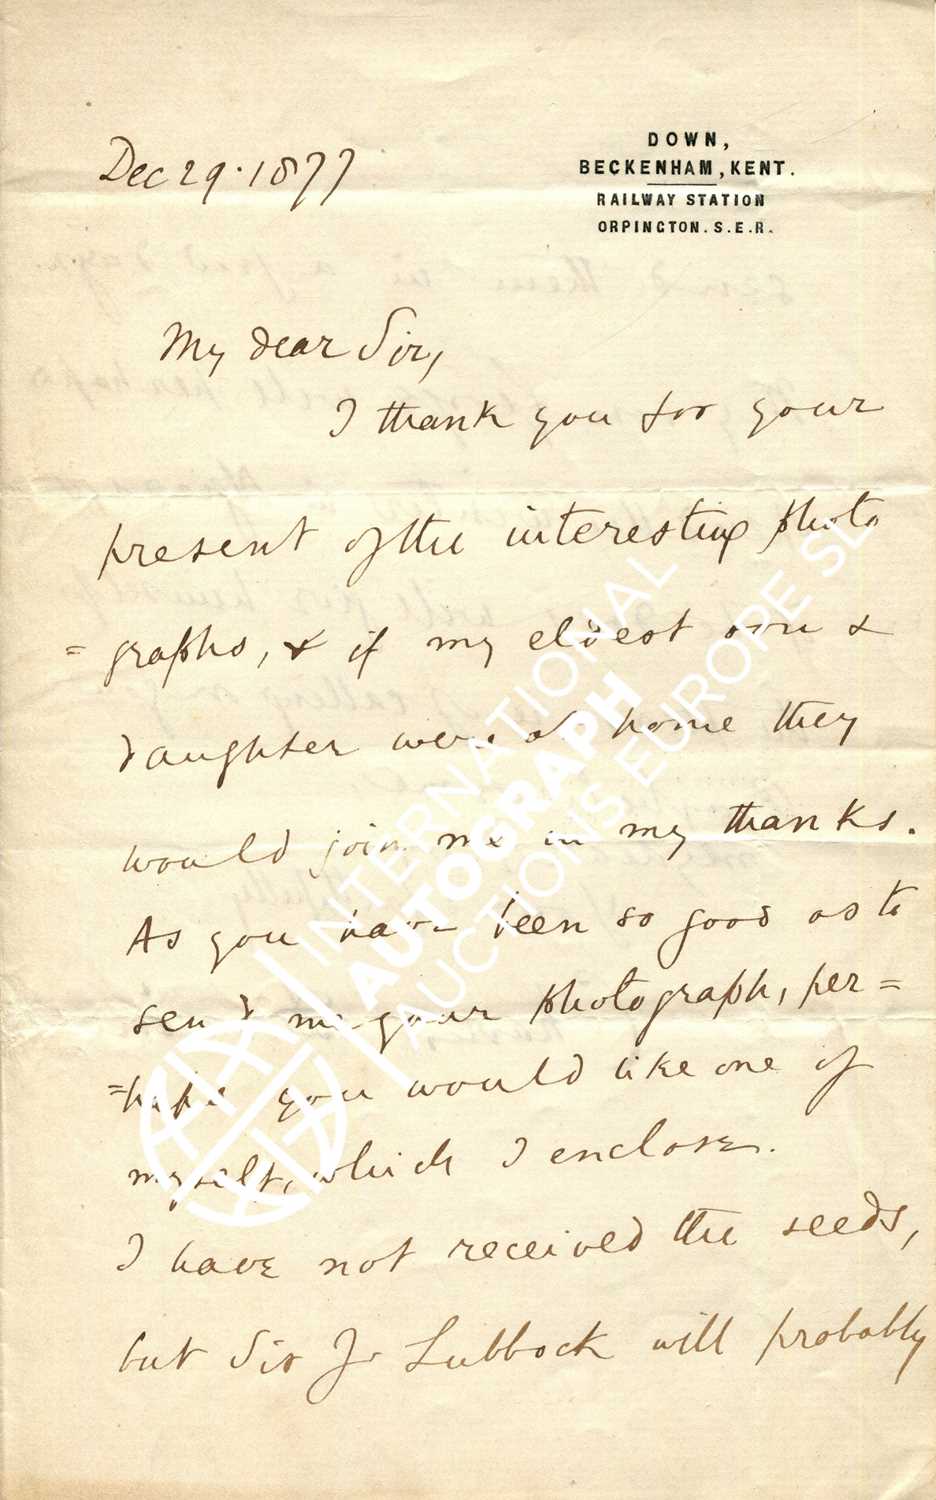 DOWN,
BECKENHAM, KENT.
RAILWAY STATION
ORPINGTON. S.E.R.
Dec 29. 1877
My dear Sir,
I thank you for your
present of the interesting photo
=graphs, & if my eldest son &
daughter were at home they
would join me in my thanks.
As you have been so good as to
send me your photograph, per=
=haps you would like one of
myself, which I enclose.
I have not received the seeds,
but Sir J. Lubbock will probably
INTERNATIONAL
AUTOGRAPH
AUCTIONS EUROPE SL